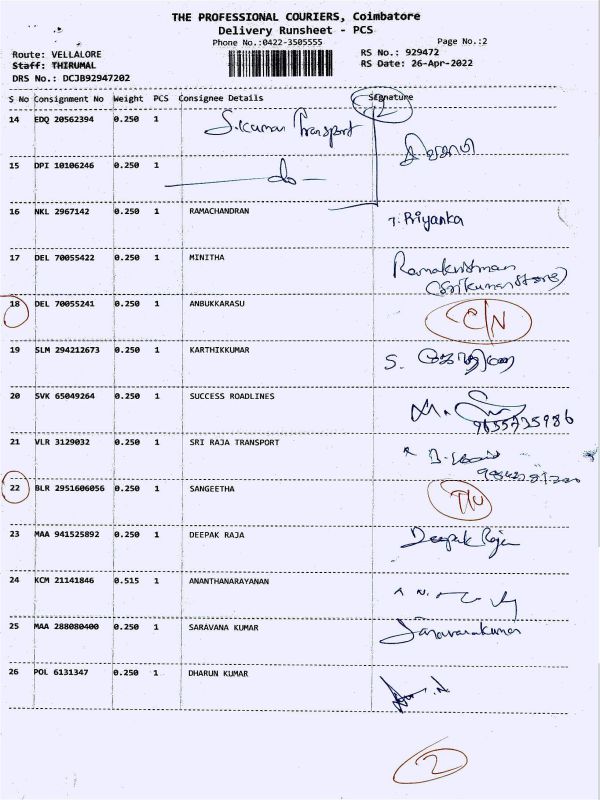 THE PROFESSIONAL COURIERS, Coimbatore
Delivery Runsheet - PCS
Phone No.:0422-3505555
Page No.:2
Route: VELLALORE
RS No.: 929472
Staff: THIRUMAL
RS Date: 26-Apr-2022
DRS No.: DCJB92947202
S No Consignment No Weight PCS Consignee Details Signature
14 EDQ 20562394 0.250 1 S.Kumar Transport
15 DPI 10106246 0.250 1 do
16 NKL 2967142 0.250 1 RAMACHANDRAN T. Priyanka
17 DEL 70055422 0.250 1 MINITHA Ramakrishnan
(Srikumar Stores)
18 DEL 70055241 0.250 1 ANBUKKARASU C/N
19 SLM 294212673 0.250 1 KARTHIKKUMAR S.
20 SVK 65049264 0.250 1 SUCCESS ROADLINES M.
21 VLR 3129032 0.250 1 SRI RAJA TRANSPORT
22 BLR 2951606056 0.250 1 SANGEETHA
23 MAA 941525892 0.250 1 DEEPAK RAJA Deepak Raja
24 KCM 21141846 0.515 1 ANANTHANARAYANAN
25 MAA 288080400 0.250 1 SARAVANA KUMAR Saravanakumar
26 POL 6131347 0.250 1 DHARUN KUMAR
2